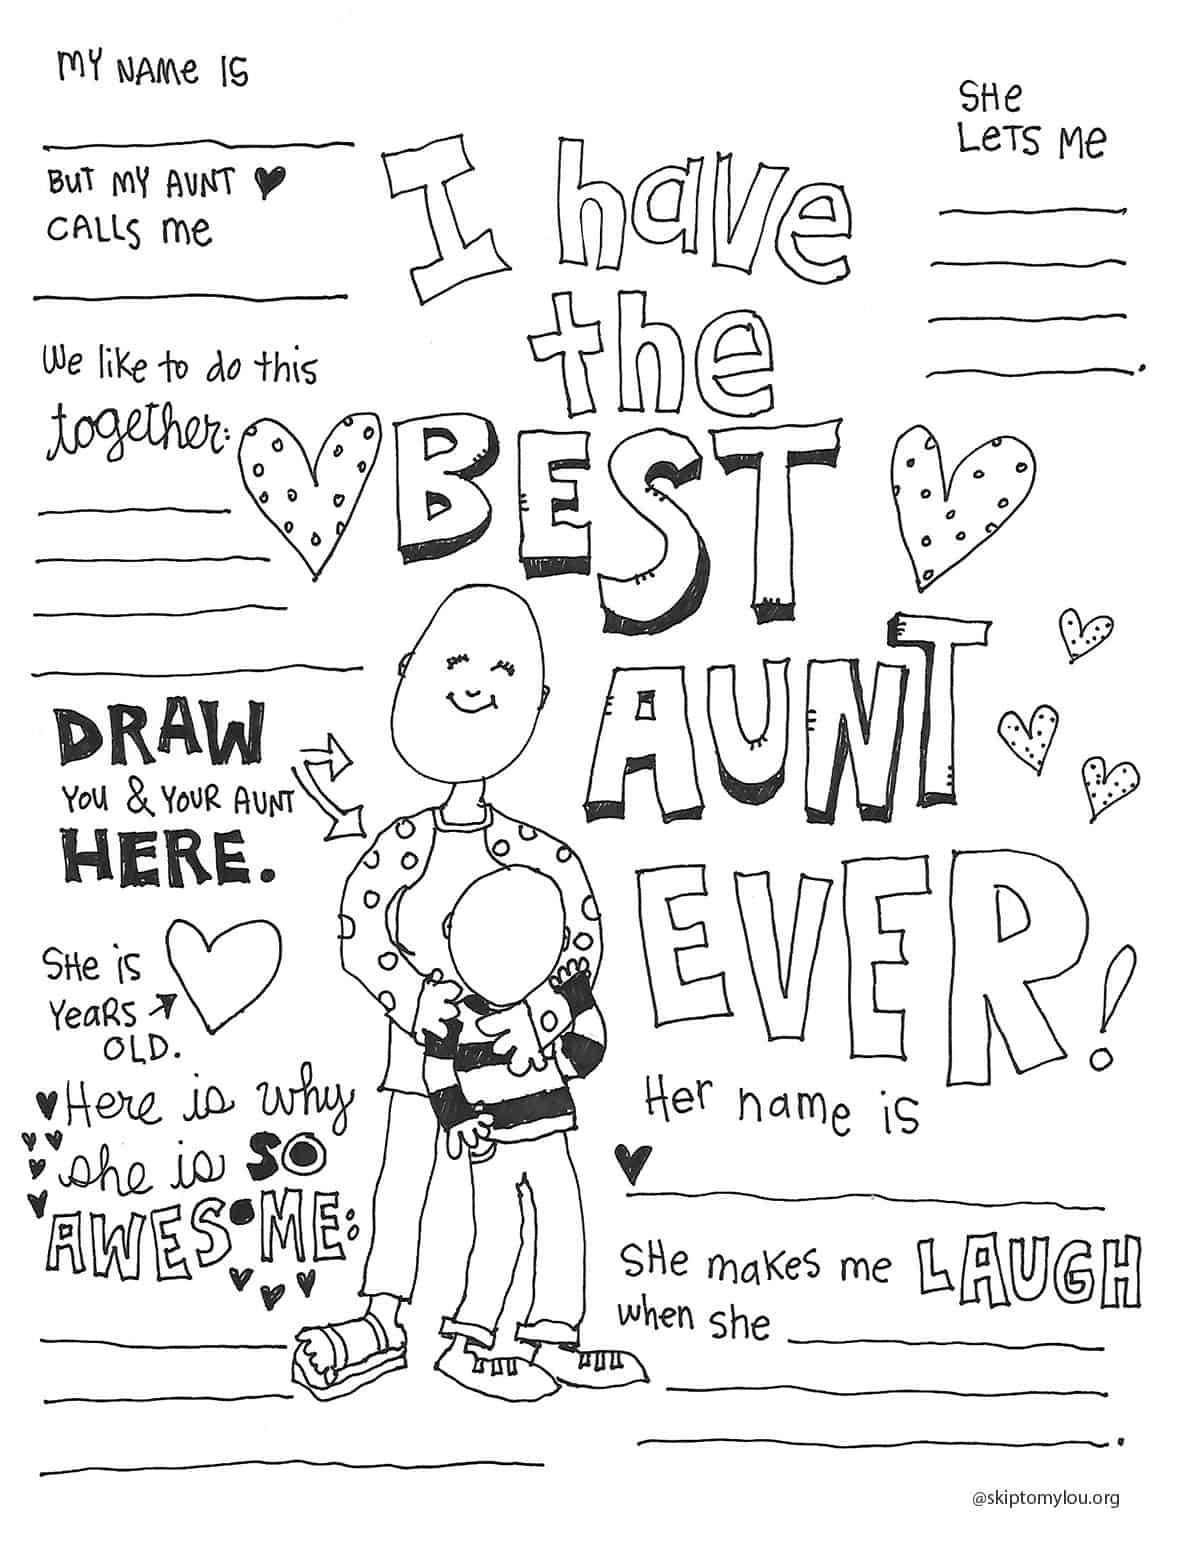 MY NAME IS
BUT MY AUNT
CALLS me
We like to do this
together:
I have
the
BEST
AUNT
EVER!
SHe
LeTS Me
DRAW
YOU & YOUR AUNT
HERE.
SHe iS
YeaRS
OLD.
Here is why
she is SO
AWESOME:
Her name is
SHe makes me LAUGH
when she
@skiptomylou.org